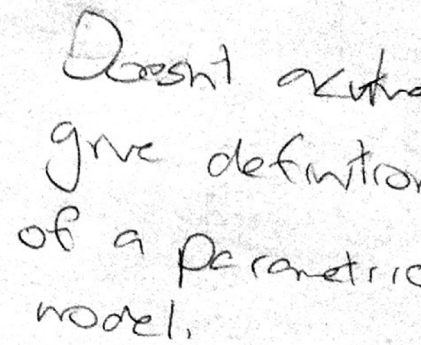 Doesn't actua
give definition
of a parametric
model.